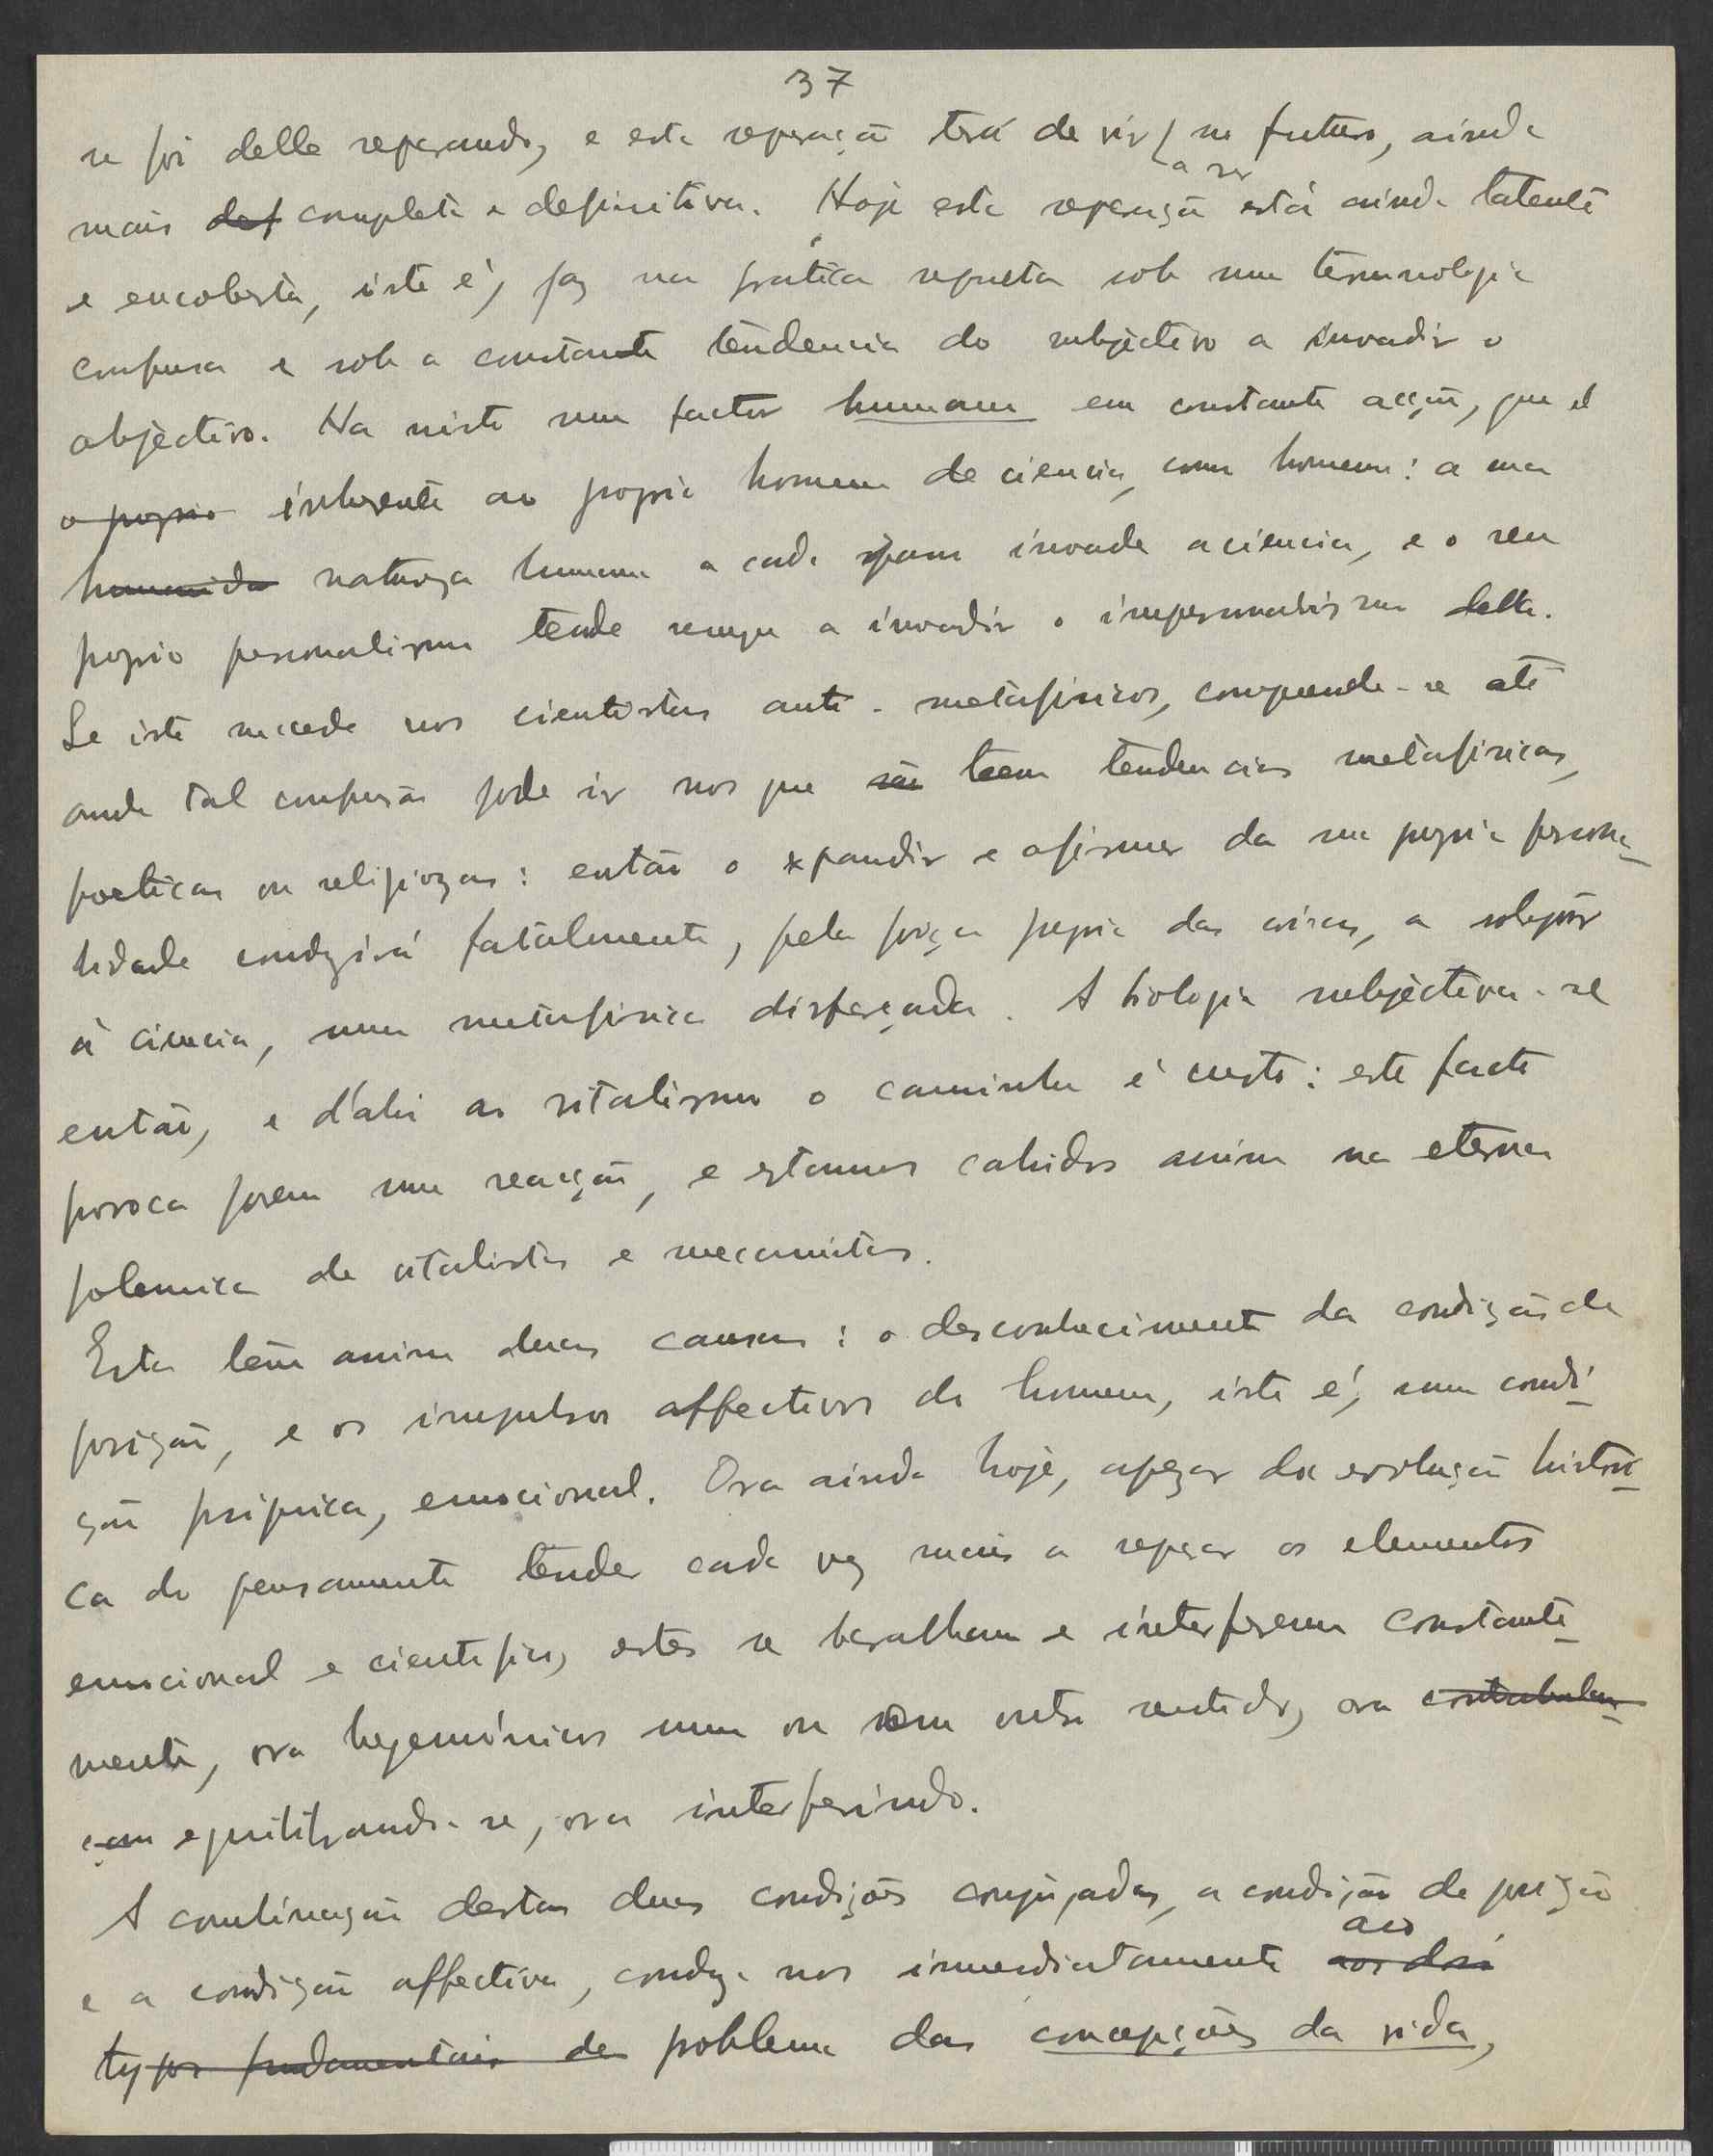 37
se foi delle separando, e esta separação terá de vir a ser no futuro, ainda
mais def completa e definitiva. Hoje esta separação está ainda latente
e encoberta, isto é, faz na pratica sob uma terminologia
confusa e sob a constante tendencia do subjectivo a invadir o
objectivo. Ha nisto um factor humano em constante acção, que é
o proprio inherente ao proprio homem de ciencia, como homem: a sua
humanida natureza humana a cada passo invade a ciencia, e o seu
proprio personalismo tende sempre a invadir o impersonalismo della.
Se isto succede nos cientistas anti-metafisicos, comprende-se até
onde tal confusão pode ir nos que são teem tendencias metafisicas,
poeticas ou religiozas: então o expandir e afirmar da sua propria persona-
lidade conduzirá fatalmente, pela força propria das coisas, a sobrepôr
á ciencia, uma metafisica disfarçada. A biologia subjectiva-se
então, e d'ahi ao vitalismo o caminho é curto: este facto
provoca porem uma reacção, e estamos cahidos assim na eterna
polemica de vitalistas e mecanistas.
Esta têm assim duas causas: o desconhecimento da condição de
pozição, e os impulsos affectivos do homem, isto é, uma condi-
ção psiquica, emocional. Ora ainda hoje, apezar da evolução histori-
ca do pensamento tender cada vez mais a separar os elementos
emocional e cientifico, estes se baralham e interferem constante-
mente, ora hegemónicos num ou nem outro sentido, ora contrabalan-
çam equilibrando-se, ora interferindo.
A combinação destas duas condições conjugadas, a condição de pozição
e a condição affectiva, conduz-nos immediatamente aos dois ao
typos fundamentais de problema das concepções da vida,